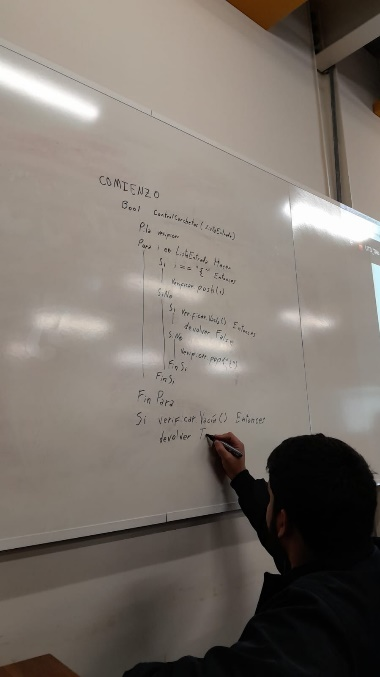 COMIENZO
Bool ControlCorchetes(ListaEntrada)
Pila
Para i en ListaEntrada Hacer
Si i == "{" Entonces
verificar.push(i)
SiNo
Si verificar.Vacía() Entonces
devolver False
SiNo
verificar.pop("{")
Fin Si
Fin Si
Fin Para
Si verificar.Vacía() Entonces
devolver T